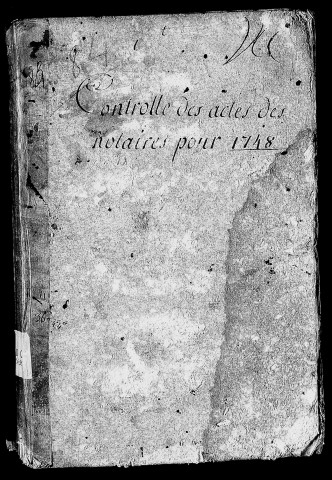 Controlle des actes des
notaires pour 1748